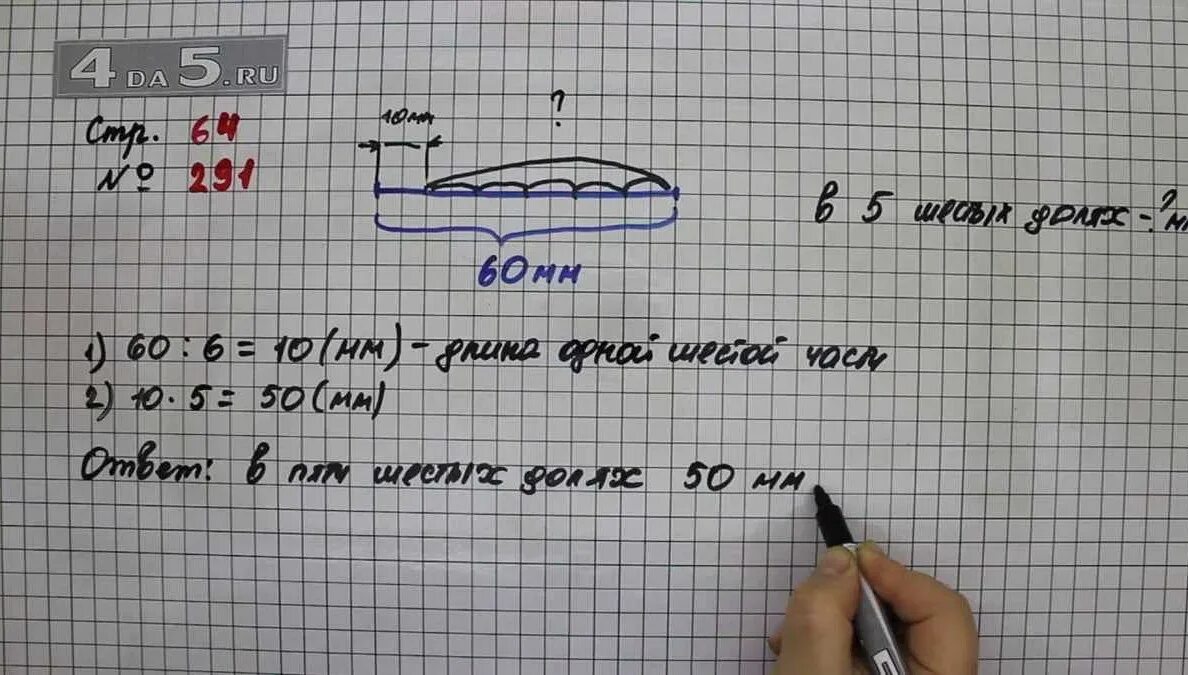 4 DA 5.RU
Стр. 64
№ 291
10мм
?
60мм
в 5 шестых долях - ? мм
1) 60 : 6 = 10 (мм) - длина одной шестой части
2) 10 · 5 = 50 (мм)
Ответ: в пяти шестых долях 50 мм